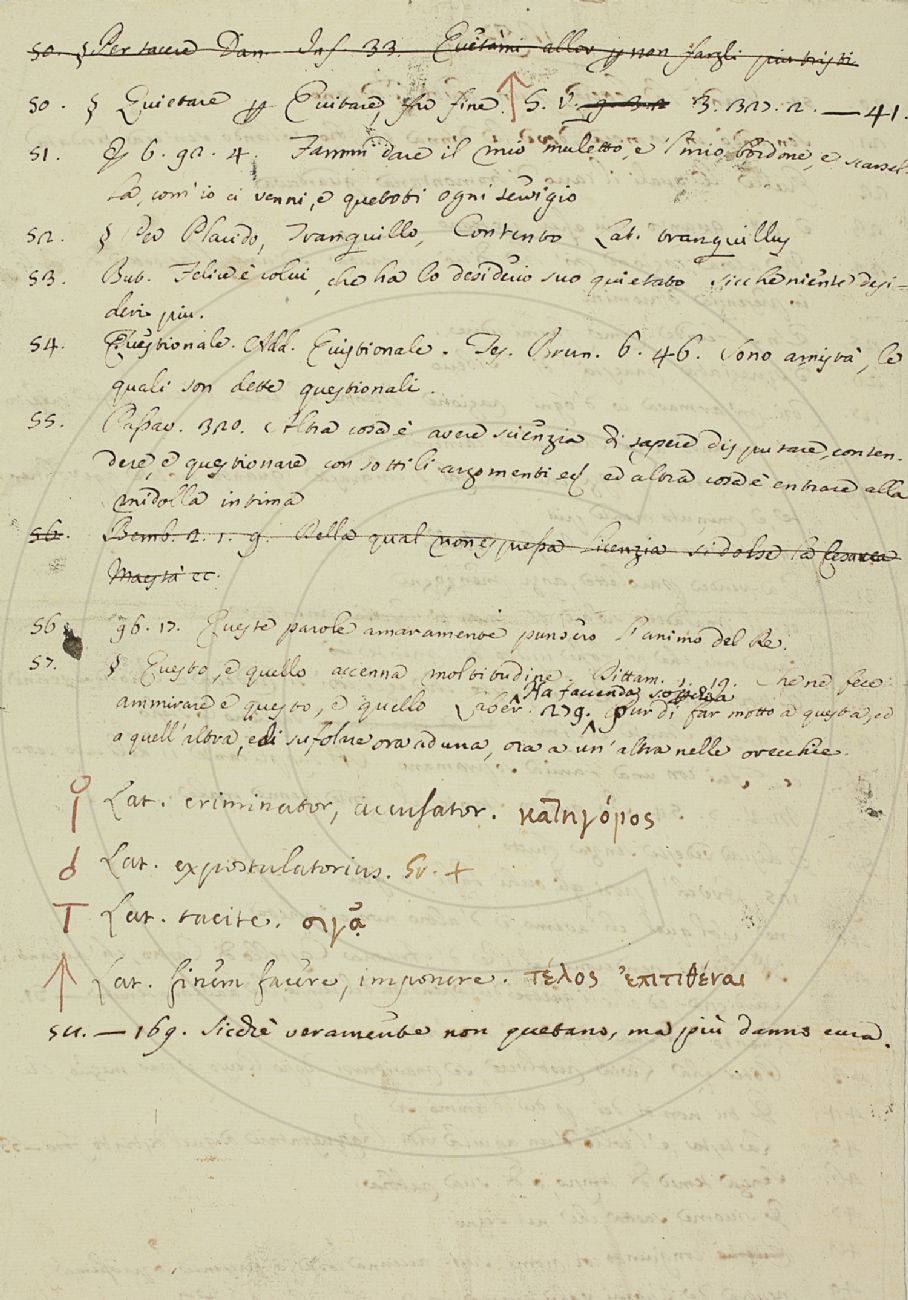 50. § Per tacere Dan. Inf. 33. Quetàmi, allor per non fargli più tristi
50. § Quietare per Quitare, far fine. S. V. g. 3. 2 3. 323. 2. — 41.
51. E 6. 92. 4. Fammi dare il mio muletto, e 'l mio bordone, e scarsel-
la, com' io ci venni, e quetoti ogni servigio
52. § Per Placido, Tranquillo, Contento, Lat. tranquillus
53. But. Felice è colui, che ha lo desiderio suo quietato sicche niente desi-
deri piu.
54. Questionale. Add. Quistionale. Tes. Brun. 6. 46. Sono amistà, le
quali son dette questionali.
55. Passav. 320. Altra cosa è avere scienzia di sapere disputare, conten-
dere, e questionare con sottili argomenti ec. ed altra cosa è entrare alla
midolla intima
56. Bemb. 2. 1. 9. Della qual non espressa licenzia si dolse la Cesarea
Maestà ec.
56 96. 17. Queste parole amaramente punsero l'animo del Re.
57. § Questo, e quello accenna moltitudine. Dittam. 1. 19. Che ne fece
ammirare e questo, e quello
Ha faccenda soffolta
279. Pur di far motto a questa, ed
a quell'altra, e di sufolare ora ad una, ora a un' altra nelle orecchie.
Lat. criminator, accusator. κατηγόρος
Lat. expostulatorius. Gr. +
Lat. tacite. σιγᾷ
Lat. finem facere, imponere. τέλος ἐπιτιθέναι
50. — 169. Sicchè veramente non quetano, ma più danno cura.